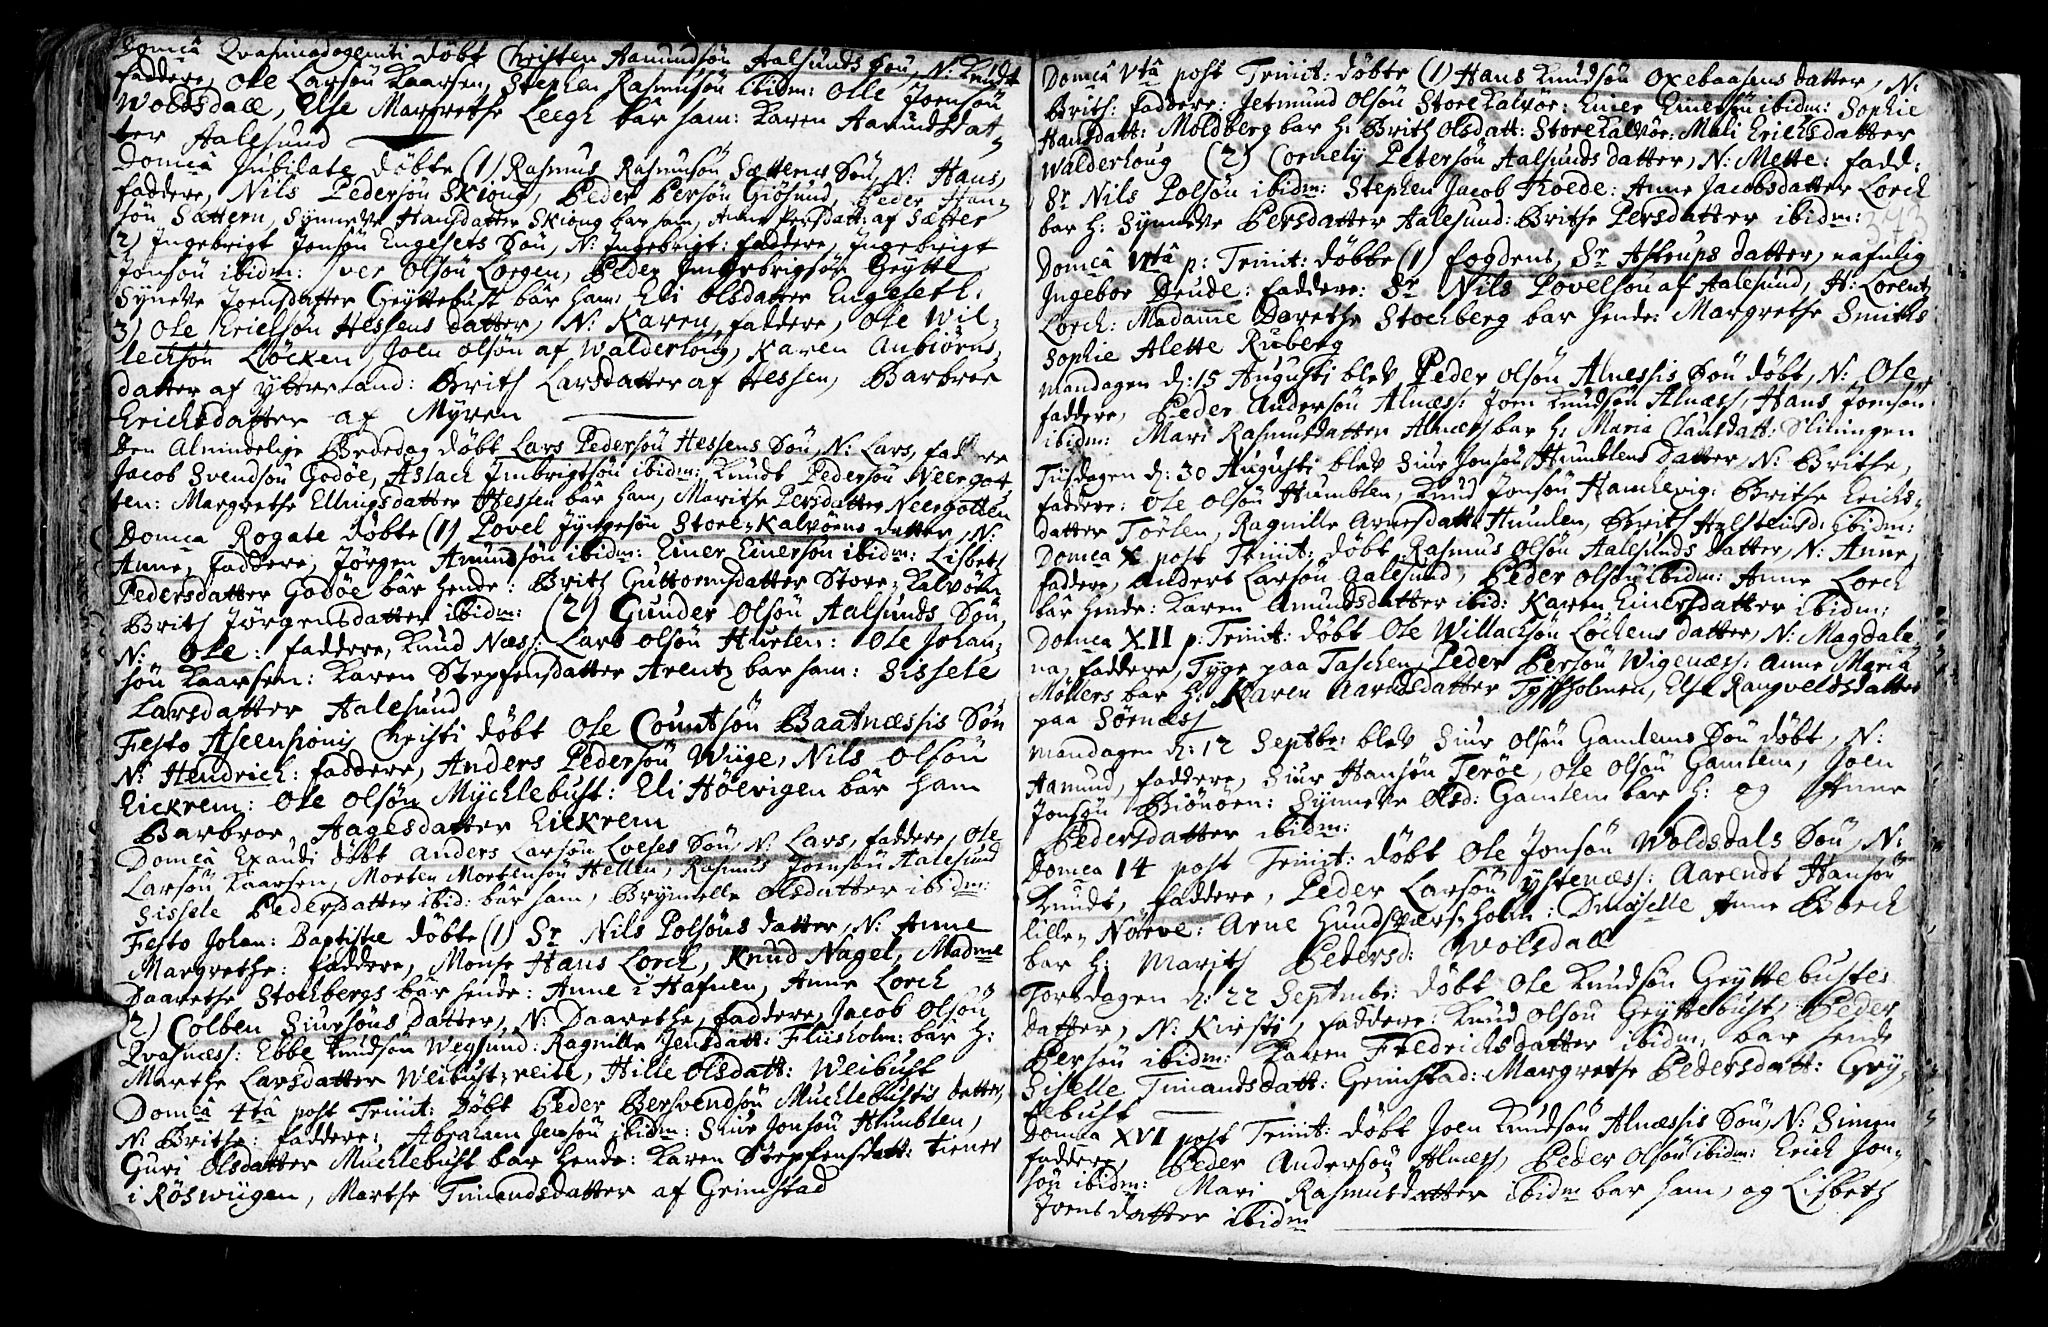 Domcâ Qvasimodogeniti döbt Christen Aamundsön Aalsunds Sön, N: Knudt
faddere, Ole Larsön Kaarsen, Stephen Rasmusön ibidm: Olle Joensön
Woldsdall, Else Margrethe Leegh bar ham: Karen Aamundsdat-
ter Aalesund
Domcâ Jubilate döbte (1) Rasmus Rasmusön Sætterns Sön, N: Hans,
faddere, Nils Pedersön Skiong, Peder Persön Giösund, Peder Han-
sön Sættern, Synneve Hansdatter Skiong bar ham, Anne Persdatt: af Sætter
(2) Ingebrigt Jonsön Engesets Sön, N: Ingebrigt: faddere, Ingebrigt
Jonsön ibidm: Iver Olsön Lorgen, Peder Imbrigtsön Grytte
Syneve Joensdatter Gryttebust bar ham, Eli Olsdatter Engesett.
3) Ole Erielsön Hessens datter, N: Karen, faddere, Ole Wil-
lechsön Löcken, Joen Olsön af Walderhoug, Karen Anbiörns-
datter af Ytterland: Brith Larsdatter af Hessen, Barbroe
Erichsdatter af Myren
Den Almindelige Bededag döbt Lars Pedersön Hessens Sön, N: Lars, faddere
Jacob Svendsön Godöe, Aslach Imbrigtsön ibidm: Knudt Pedersön Neergot-
ten: Margrethe Ellingsdatter Hessen bar ham, Marithe Persdatter Neergotten
Domca Rogate döbte (1) Povel Jyngesön Store-Kalvöens datter, N:
Anne, faddere, Jörgen Amundsön ibidm: Einer Einersön ibidm: Lisbeth
Pedersdatter Godöe bar hende: Brith Guttormsdatter Store-Kalvöen
Brith Jörgensdatter ibidm: (2) Gunder Olsön Aalsunds Sön,
N: Ole: faddere, Knud Næss: Lars Olsön Hurlen: Ole Johan-
sön Kaarsen: Karen Stepfensdatter Arentz bar ham: Sissele
Larsdatter Aalesund
Festo Ascensionis Christi döbt Ole Countsön Baatnæssis Sön
N: Hendrich: faddere, Anders Pedersön Wiige, Nils Olsön
Eickrem: Ole Olsön Mychlebust: Eli Höevigen bar ham
Barbroe Aagesdatter Eickrem
Domcâ Exaudi döbt Anders Larsön Loeses Sön, N: Lars, faddere, Ole
Larsön Kaarsen, Morten Mortensön Hellen, Rasmus Joensön Aalesund
Sissele Pedersdatter ibid: bar ham, Brynnelle Olsdatter ibidm:
Festo Johan: Baptistæ döbte (1) Sr Nils Polsöns datter, N: Anne
Margrethe: faddere, Monsr Hans Lorch, Knud Nagel, Madme
Daarethe Stochbergs bar hende: Anne i Hafnen, Anne Lorch
2) Colben Siursöns datter, N: Daarethe, faddere, Jacob Olsön
Qvasnæss: Ebbe Knudsön Wegsund: Ragnille Jensdatt: Fliisholm: bar H:
Marthe Larsdatter Weibust-reite, Hilie Olsdatt: Weibust
Domcâ 4tâ post Trinit: döbt Peder Bersvendsön Muchlebustis datter,
N: Brithe: faddere, Abraham Jensön ibidm: Siur Jonsön Humblen,
Guri Olsdatter Muchlebust bar hende: Karen Stepfensdatt: tiener
i Röswiigen, Marthe Timandsdatter af Grimstad
Domcâ Vtâ post Trinit: döbte (1) Hans Knudsön Oxebaasens datter, N:
Brith: faddere: Jetmund Olsön Store Kalvöe: Einer Einersön ibidm: Sophie
Hansdatt: Moldberg bar H: Brith Olsdatt: Store Kalvöe: Mali Erichsdatter
Walderhoug (2) Cornely Petersön Aalsunds datter, N: Mette: fadd:
Sr Nils Polsön ibidm: Stephen Jacob Thoede: Anne Jacobsdatter Lorch
bar H: Synneve Persdatter Aalesund: Brithe Persdatter ibidm:
373
Domcâ VItâ p: Trinit: döbte (1) fogdens, Sr Astrups datter, nafnlig
Ingebor Deude: faddere: Sr Nils Povelsön af Aalesund, H: Lorentz
Lorch: Madame Darethe Stochberg bar hende: Margrethe Smiths
Sophie Alette Ruberg
Mandagen d: 15 Augusti blev Peder Olsön Alnessis Sön döbt, N: Ole
faddere, Peder Andersön Alnæss: Joen Knudsön Alnæss, Hans Joensön
ibidm: Mari Rasmusdatter Alnæs bar H: Maria Clausdatt: Slinningen
Tiisdagen d: 30 Augusti blev Siur Jonsön Humblens datter, N: Brithe,
faddere: Ole Olsön Humblen, Knud Jonsön Hamnevig: Brithe Erichs-
datter Törlen, Ragnille Arnesdatt: Humlen, Brith Halstensd: ibidm:
Domca X post Trinit: döbt Rasmus Olsön Aalesunds datter, N: Anne,
faddere, Anders Larsön Aalesund, Peder Olsön ibidm: Anne Lorch
bar hende: Karen Amundsdatter ibid: Karen Einersdatter ibidm:
Domca XII p: Trinit: döbt Ole Willachsön Löchens datter, N: Magdale-
na, faddere, Tyge paa Taschen, Peder Persön Wigenæss: Anne Maria
Möllers bar H: Karen Aarudsdatter Tyssholmen, Else Rangveldsdatter
paa Sörnæss
Mandagen d: 12 Septbr: blev Siur Olsön Gamlems Sön döbt, N:
Aamund, faddere, Siur Hansön Teröe, Ole Olsön Gamlem, Joen
Jonsön Biönöen: Synneve Olsd: Gamlem bar H: og Anne
Pedersdatter ibidm:
Domca 14 post Trinit: döbt Ole Jonsön Woldsdals Sön, N:
Knudt, faddere, Peder Larsön Ystenæss: Aarendt Hansön
lille-Nörve: Arne Hundsværs-holm: Dmoiselle Anne Borch
bar H: Marith Pedersd: Wolsdall
Torsdagen d: 22 Septmbr: döbt Ole Knudsön Gryttebustes
datter, N: Kirsti, faddere: Knud Olsön Gryttebust, Peder
Persön ibidm: Karen Fredrichsdatter ibidm, bar hende
Siselle Timandsdatt: Grimstad: Margrethe Pedersdatt: Gry-
tebust
Domca XVI post Trinit: döbt Joen Knudsön Alnæssis Sön, N: Simen
faddere, Peder Andersön Alnæss, Peder Olsön ibidm: Erich Jon-
sön ibidm: Mari Rasmusdatter ibidm bar ham, og Lisbeth
Joensdatter ibidm